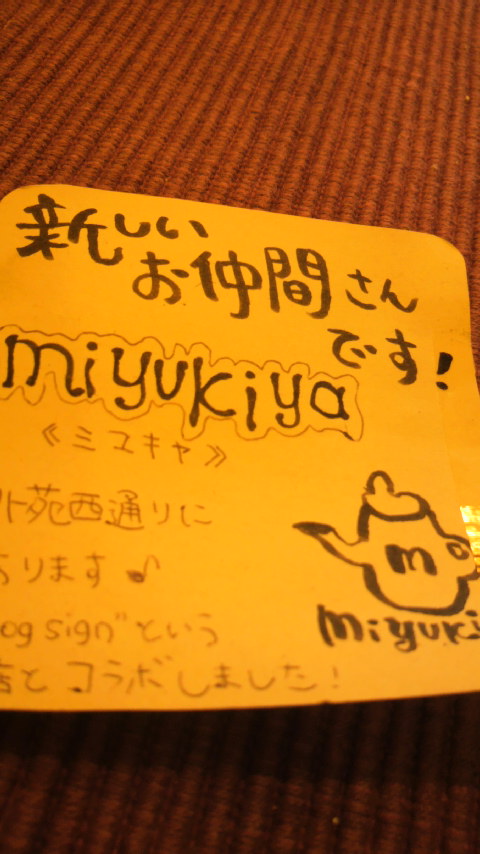 新しい
お仲間さん
です!
miyukiya
《ミユキヤ》
外苑西通りに
あります♪
og sign"という
店とコラボしました!
m
miyuki